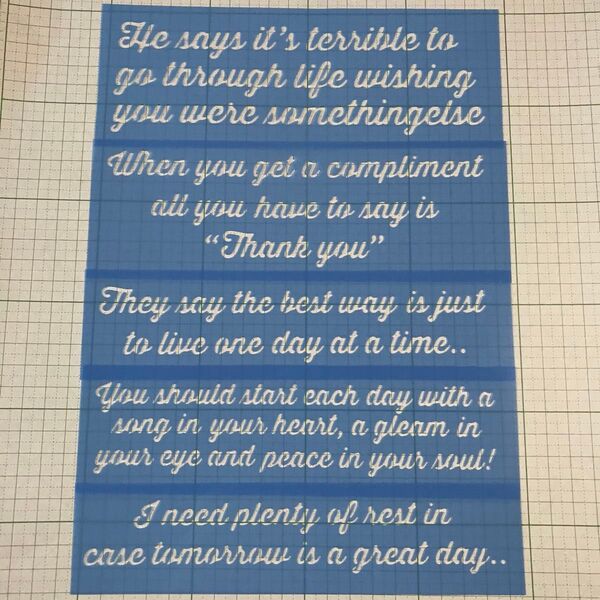 He says it's terrible to
go through life wishing
you were somethingelse
When you get a compliment
all you have to say is
“Thank you”
They say the best way is just
to live one day at a time..
You should start each day with a
song in your heart, a gleam in
your eye and peace in your soul!
I need plenty of rest in
case tomorrow is a great day..